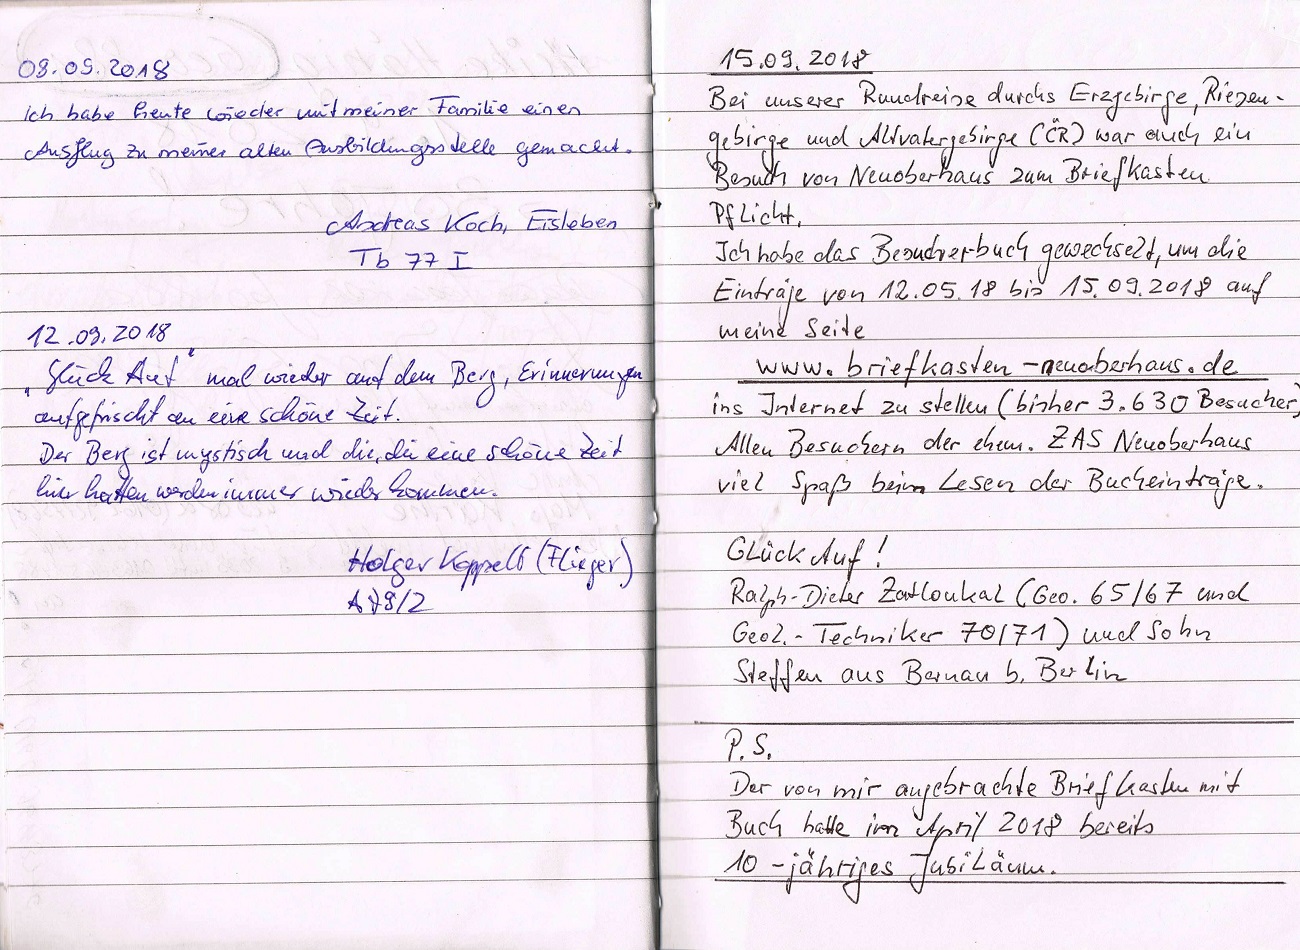 09.09.2018
Ich habe heute wieder mit meiner Familie einen
Ausflug zu meiner alten Ausbildungsstelle gemacht.
Andreas Koch, Eisleben
Tb 77 I
12.09.2018
„Glück Auf" mal wieder auf dem Berg, Erinnerungen
aufgefrischt an eine schöne Zeit.
Der Berg ist mystisch und die, die eine schöne Zeit
hier hatten werden immer wieder kommen.
Holger Koppelt (Flieger)
A78/2
15.09.2018
Bei unserer Rundreise durchs Erzgebirge, Riesen-
gebirge und Altvatergebirge (ČR) war auch ein
Besuch von Neuoberhaus zum Briefkasten
Pflicht.
Ich habe das Besucherbuch gewechselt, um die
Einträge von 12.05.18 bis 15.09.2018 auf
meine Seite
www.briefkasten-neuoberhaus.de
ins Internet zu stellen (bisher 3.630 Besucher)
Allen Besuchern der ehem. ZAS Neuoberhaus
viel Spaß beim Lesen der Bucheinträge.
Glück Auf!
Ralph-Dieter Zatloukal (Geo. 65/67 und
Geol.-Techniker 70/71) und Sohn
Steffen aus Bernau b. Berlin
P.S.
Der von mir angebrachte Briefkasten mit
Buch hatte im April 2018 bereits
10-jähriges Jubiläum.